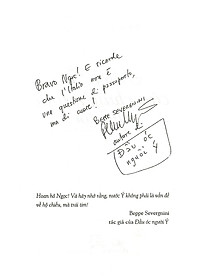 Bravo Ngoc! E ricorda
che l'Italia non è
una questione di passaporto,
ma di cuore!
Beppe Severgnini
autore di
Đầu óc
người Ý
Hoan hô Ngọc! Và hãy nhớ rằng, nước Ý không phải là vấn đề
về hộ chiếu, mà trái tim!
Beppe Severgnini
tác giả của Đầu óc người Ý